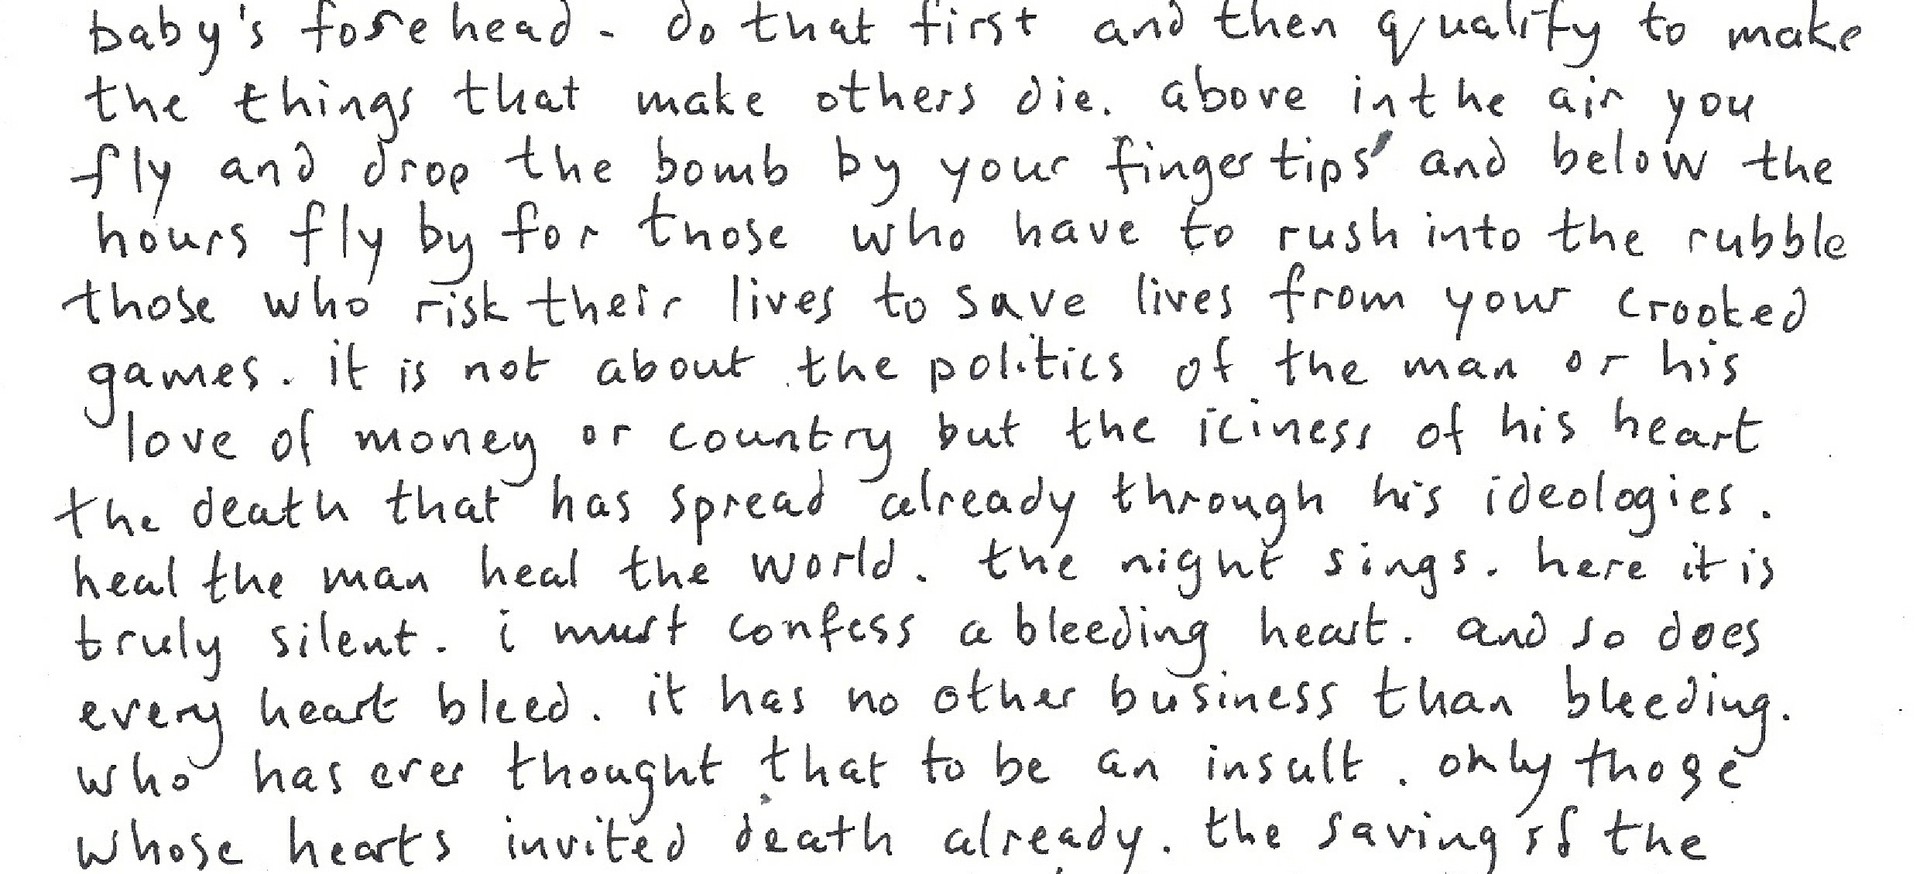 baby's forehead - do that first and then qualify to make
the things that make others die. above in the air you
fly and drop the bomb by your finger tips' and below the
hours fly by for those who have to rush into the rubble
those who risk their lives to save lives from your crooked
games. it is not about the politics of the man or his
love of money or country but the iciness of his heart
the death that has spread already through his ideologies.
heal the man heal the world. the night sings. here it is
truly silent. i must confess a bleeding heart. and so does
every heart bleed. it has no other business than bleeding.
who has ever thought that to be an insult. only those
whose hearts invited death already. the saving of the